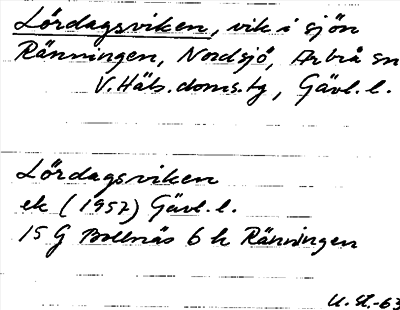 Lördagsviken, vik i sjön
Ränningen, Nordsjö, Arbrå sn
V. Häls. doms.tg, Gävl. l.
Lördagsviken
ek (1957) Gävl. l.
15 G Bollnäs 6 h Ränningen
U. St.-63